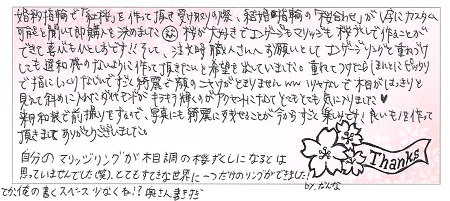 婚約指輪で「紅桜」を作って頂き受け取りの際、結婚指輪の「桜合わせ」が
可能と聞いて即購入を決めました 桜が大好きでエンゲージもマリッジも桜づくしで作ることが
できて喜びもひとしおです!!そして、注文時職人さんへお願いとして エンゲージリングと重ねづけ
しても違和感のないように作って頂きたいと希望を出していました。重ねてつけたら ほんとにピッタリ
で指にしっくりなじんですごく綺麗で顔のニヤけがとまりませんww ツヤなしで木目がはっきりと
見えて斜めに入れたダイヤモンドが キラキラ輝くのがアクセントになってとてもとても気に入りました♥
来月和装で前撮りをするので、写真にも綺麗に残せることが今からすごく楽しみです!良いものを作って
頂きましてありがとうございました。
自分のマリッジリングが木目調の桜づくしになるとは
思っていませんでした(笑)とてもすてきな世界に一つだけのリングができました!
byだんな
てか俺の書くスペース少なくね!?奥さん書きすぎ
Thanks